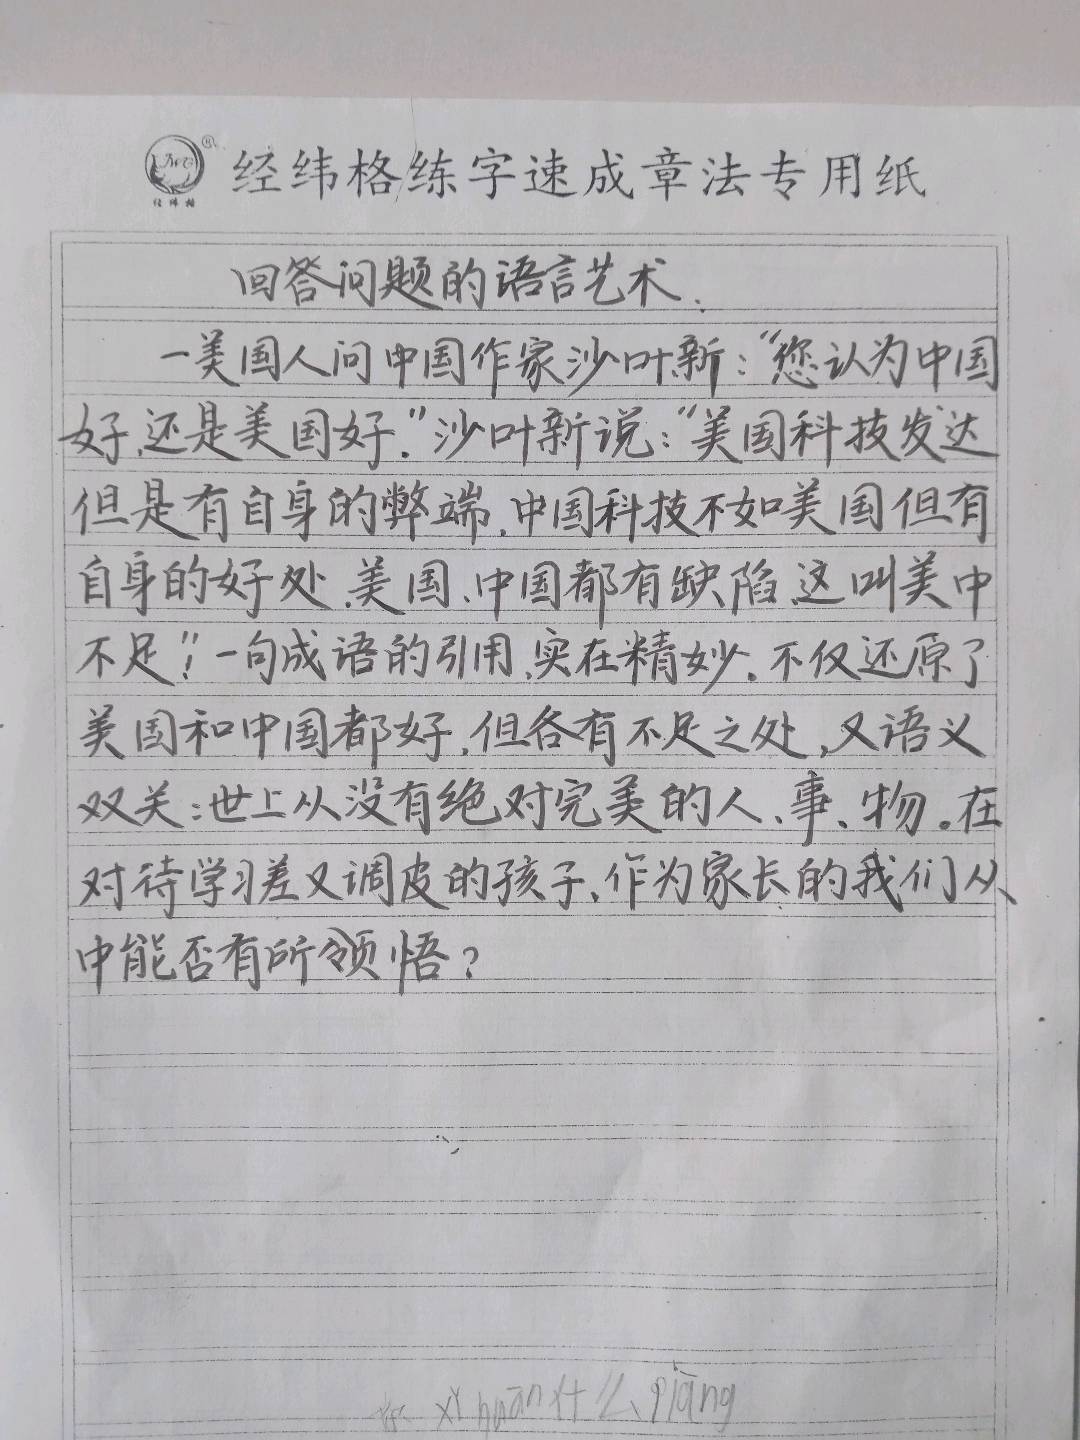 JWG ®
经纬格
经纬格练字速成章法专用纸
回答问题的语言艺术.
一美国人问中国作家沙叶新:“您认为中国
好,还是美国好.”沙叶新说:“美国科技发达
但是有自身的弊端,中国科技不如美国但有
自身的好处、美国、中国都有缺陷,这叫美中
不足!”一句成语的引用,实在精妙。不仅还原了
美国和中国都好,但各有不足之处,又语义
双关:世上从没有绝对完美的人、事、物。在
对待学习差又调皮的孩子,作为家长的我们从
中能否有所领悟?
xǐ huān什么 qiāng